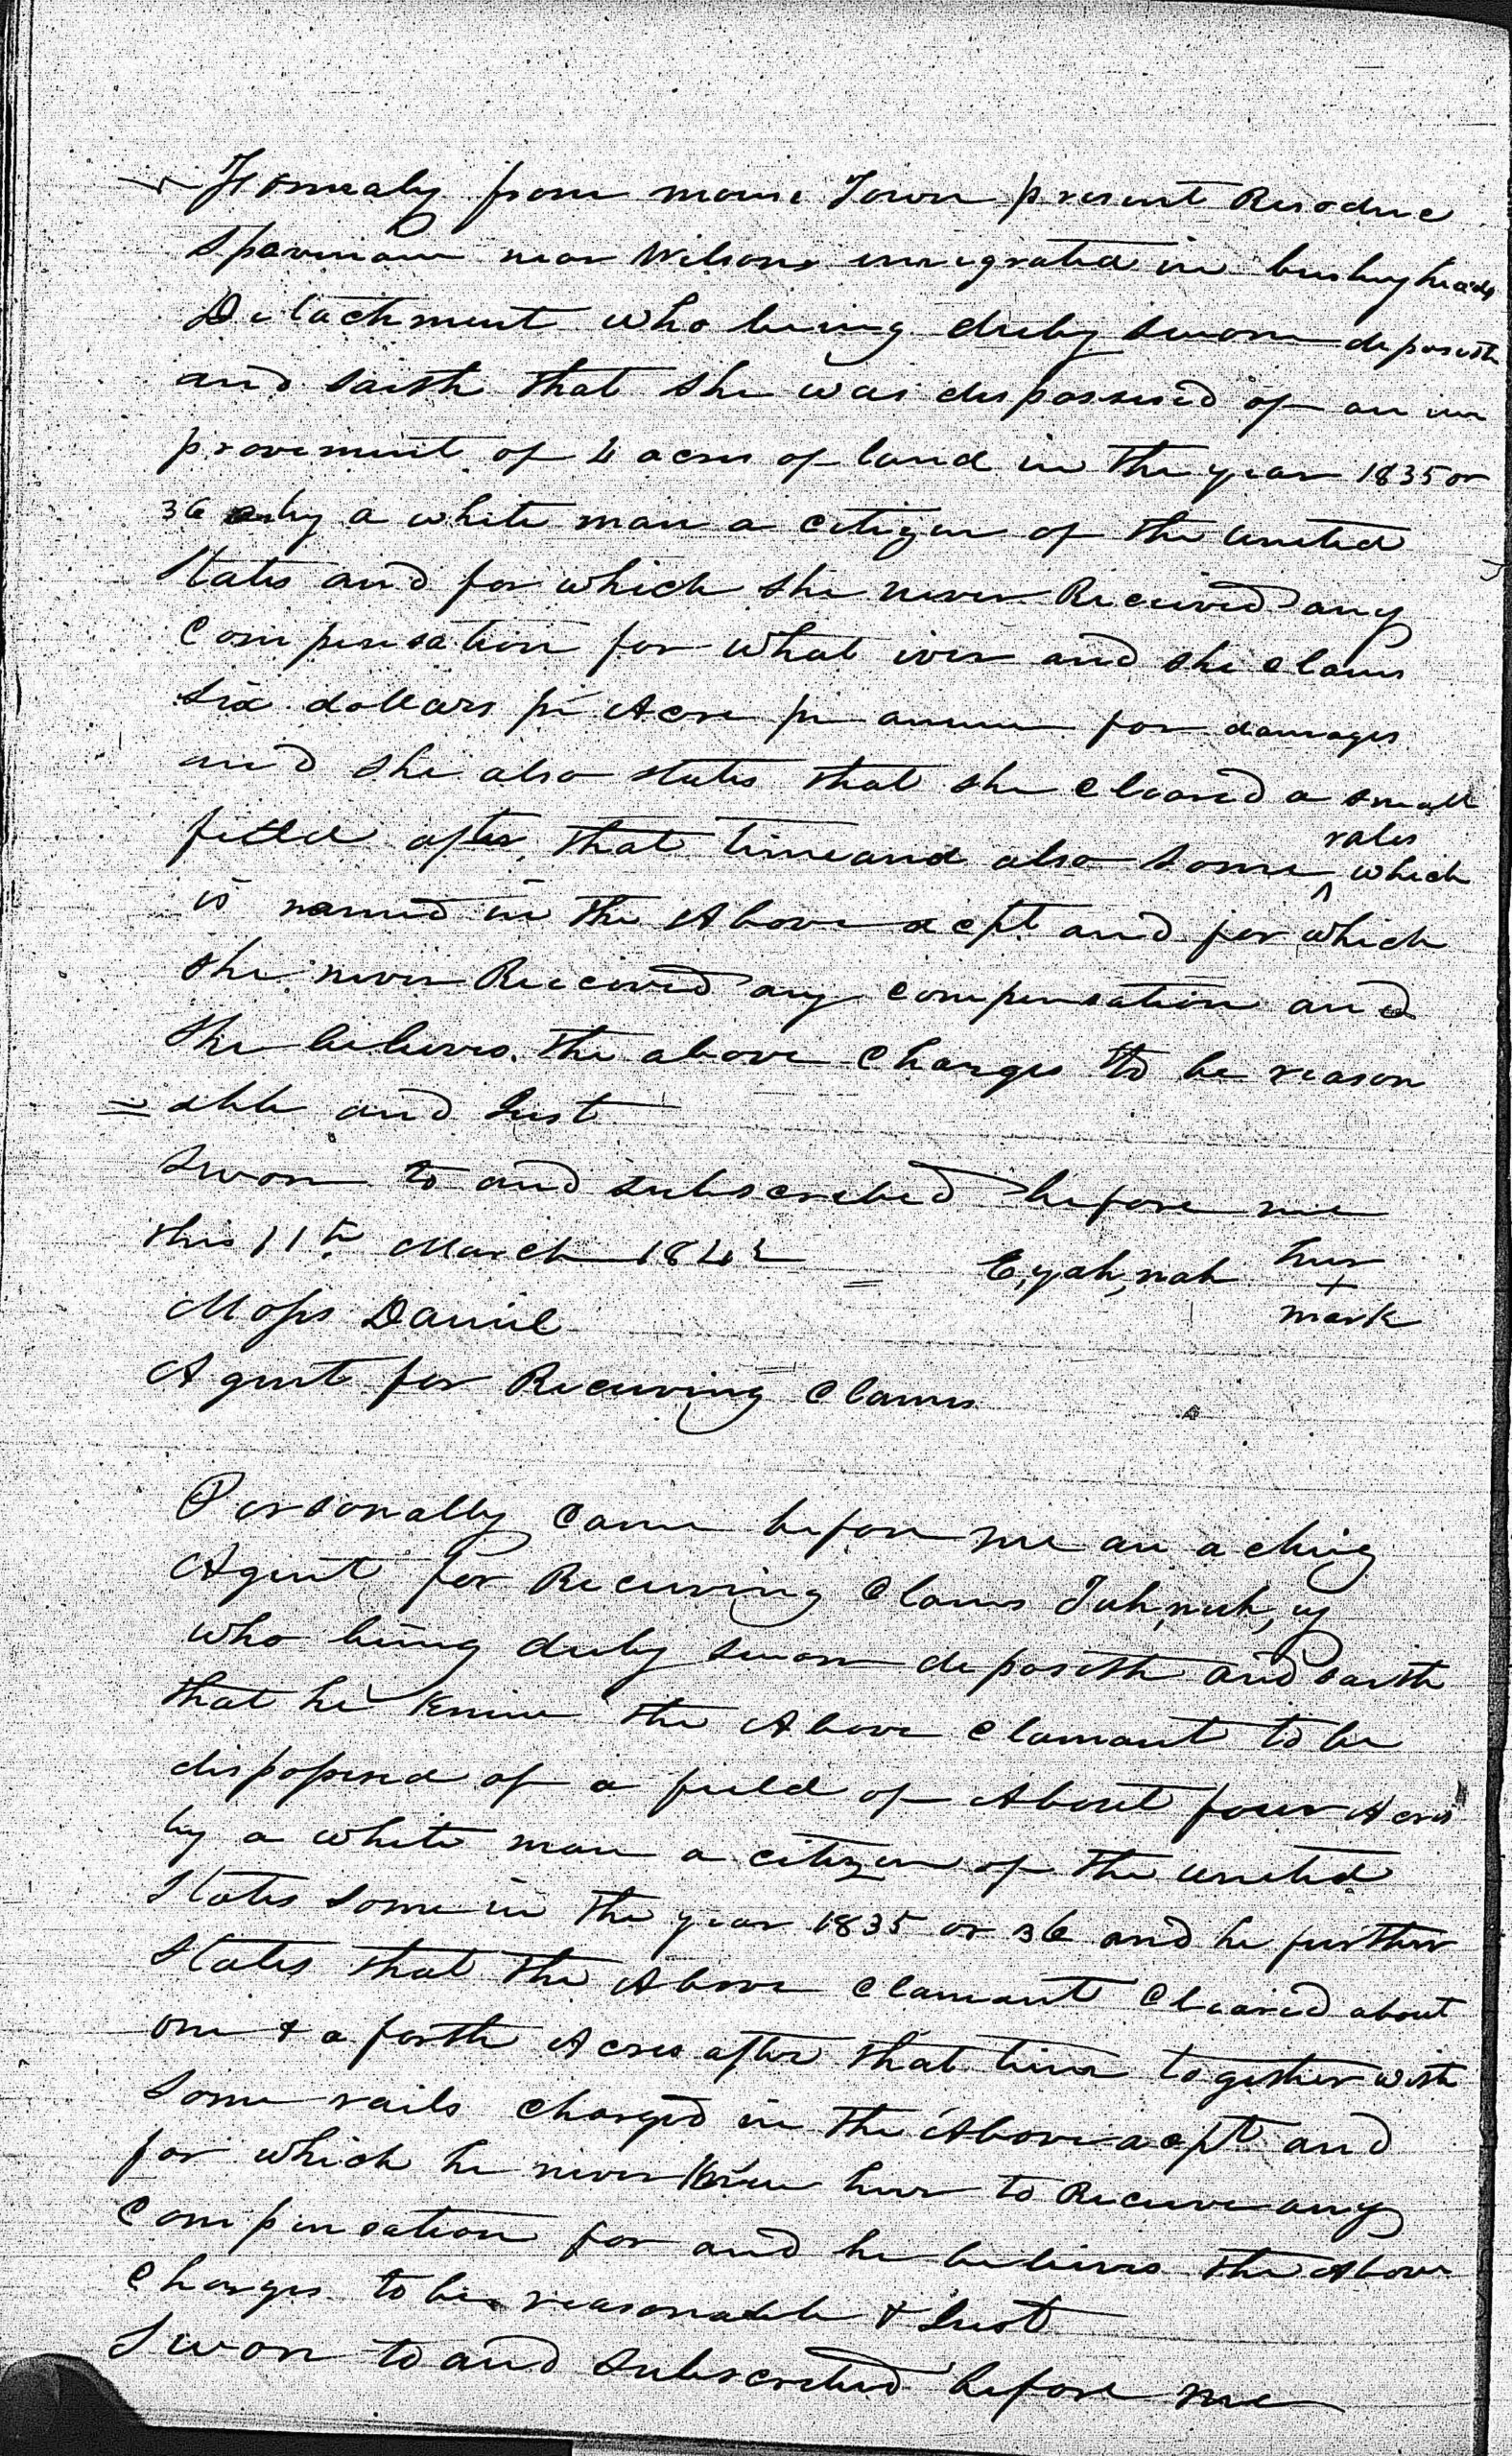 Formealy from mouse Town present Resodnce
Spavinaw near Wilsons emigrated in bushyheads
Detachment who being duly sworn deposeth
and saith that she was dispossesed of an im
provement of 4 acres of land in the year 1835 or
36 by a white man a citizen of the united
States and for which she never Received any
Compensation for what ever and she claims
six dollars pr Acre pr annum for damages
and she also states that she cleared a small
field after that time and also some rales which
is named in the Above acpt and for which
she never Received any compensation and
she believes the above Charges to be reason
=able and Just
Swon to and subscribed before me
this 11th March 1842 = E,yah,nah her
x
Moses Daniel mark
Agent for Receiving Claims
Personally came before me an acting
Agent for Receiving Claims Tah,nuh,
who being duly sworn deposeth and saith
that he knew the Above clamant to be
dispossesed of a field of About four Acres
by a white man a citizen of the united
States some in the year 1835 or 36 and he further
States that the Above clamant Cleared about
one & a forth Acres after that time together with
some rails charged in the Above acpt and
for which he never knew her to Receive any
Compensation for and he believes the Above
Charges to be reasonable & Just
Swon to and Subscribed before me